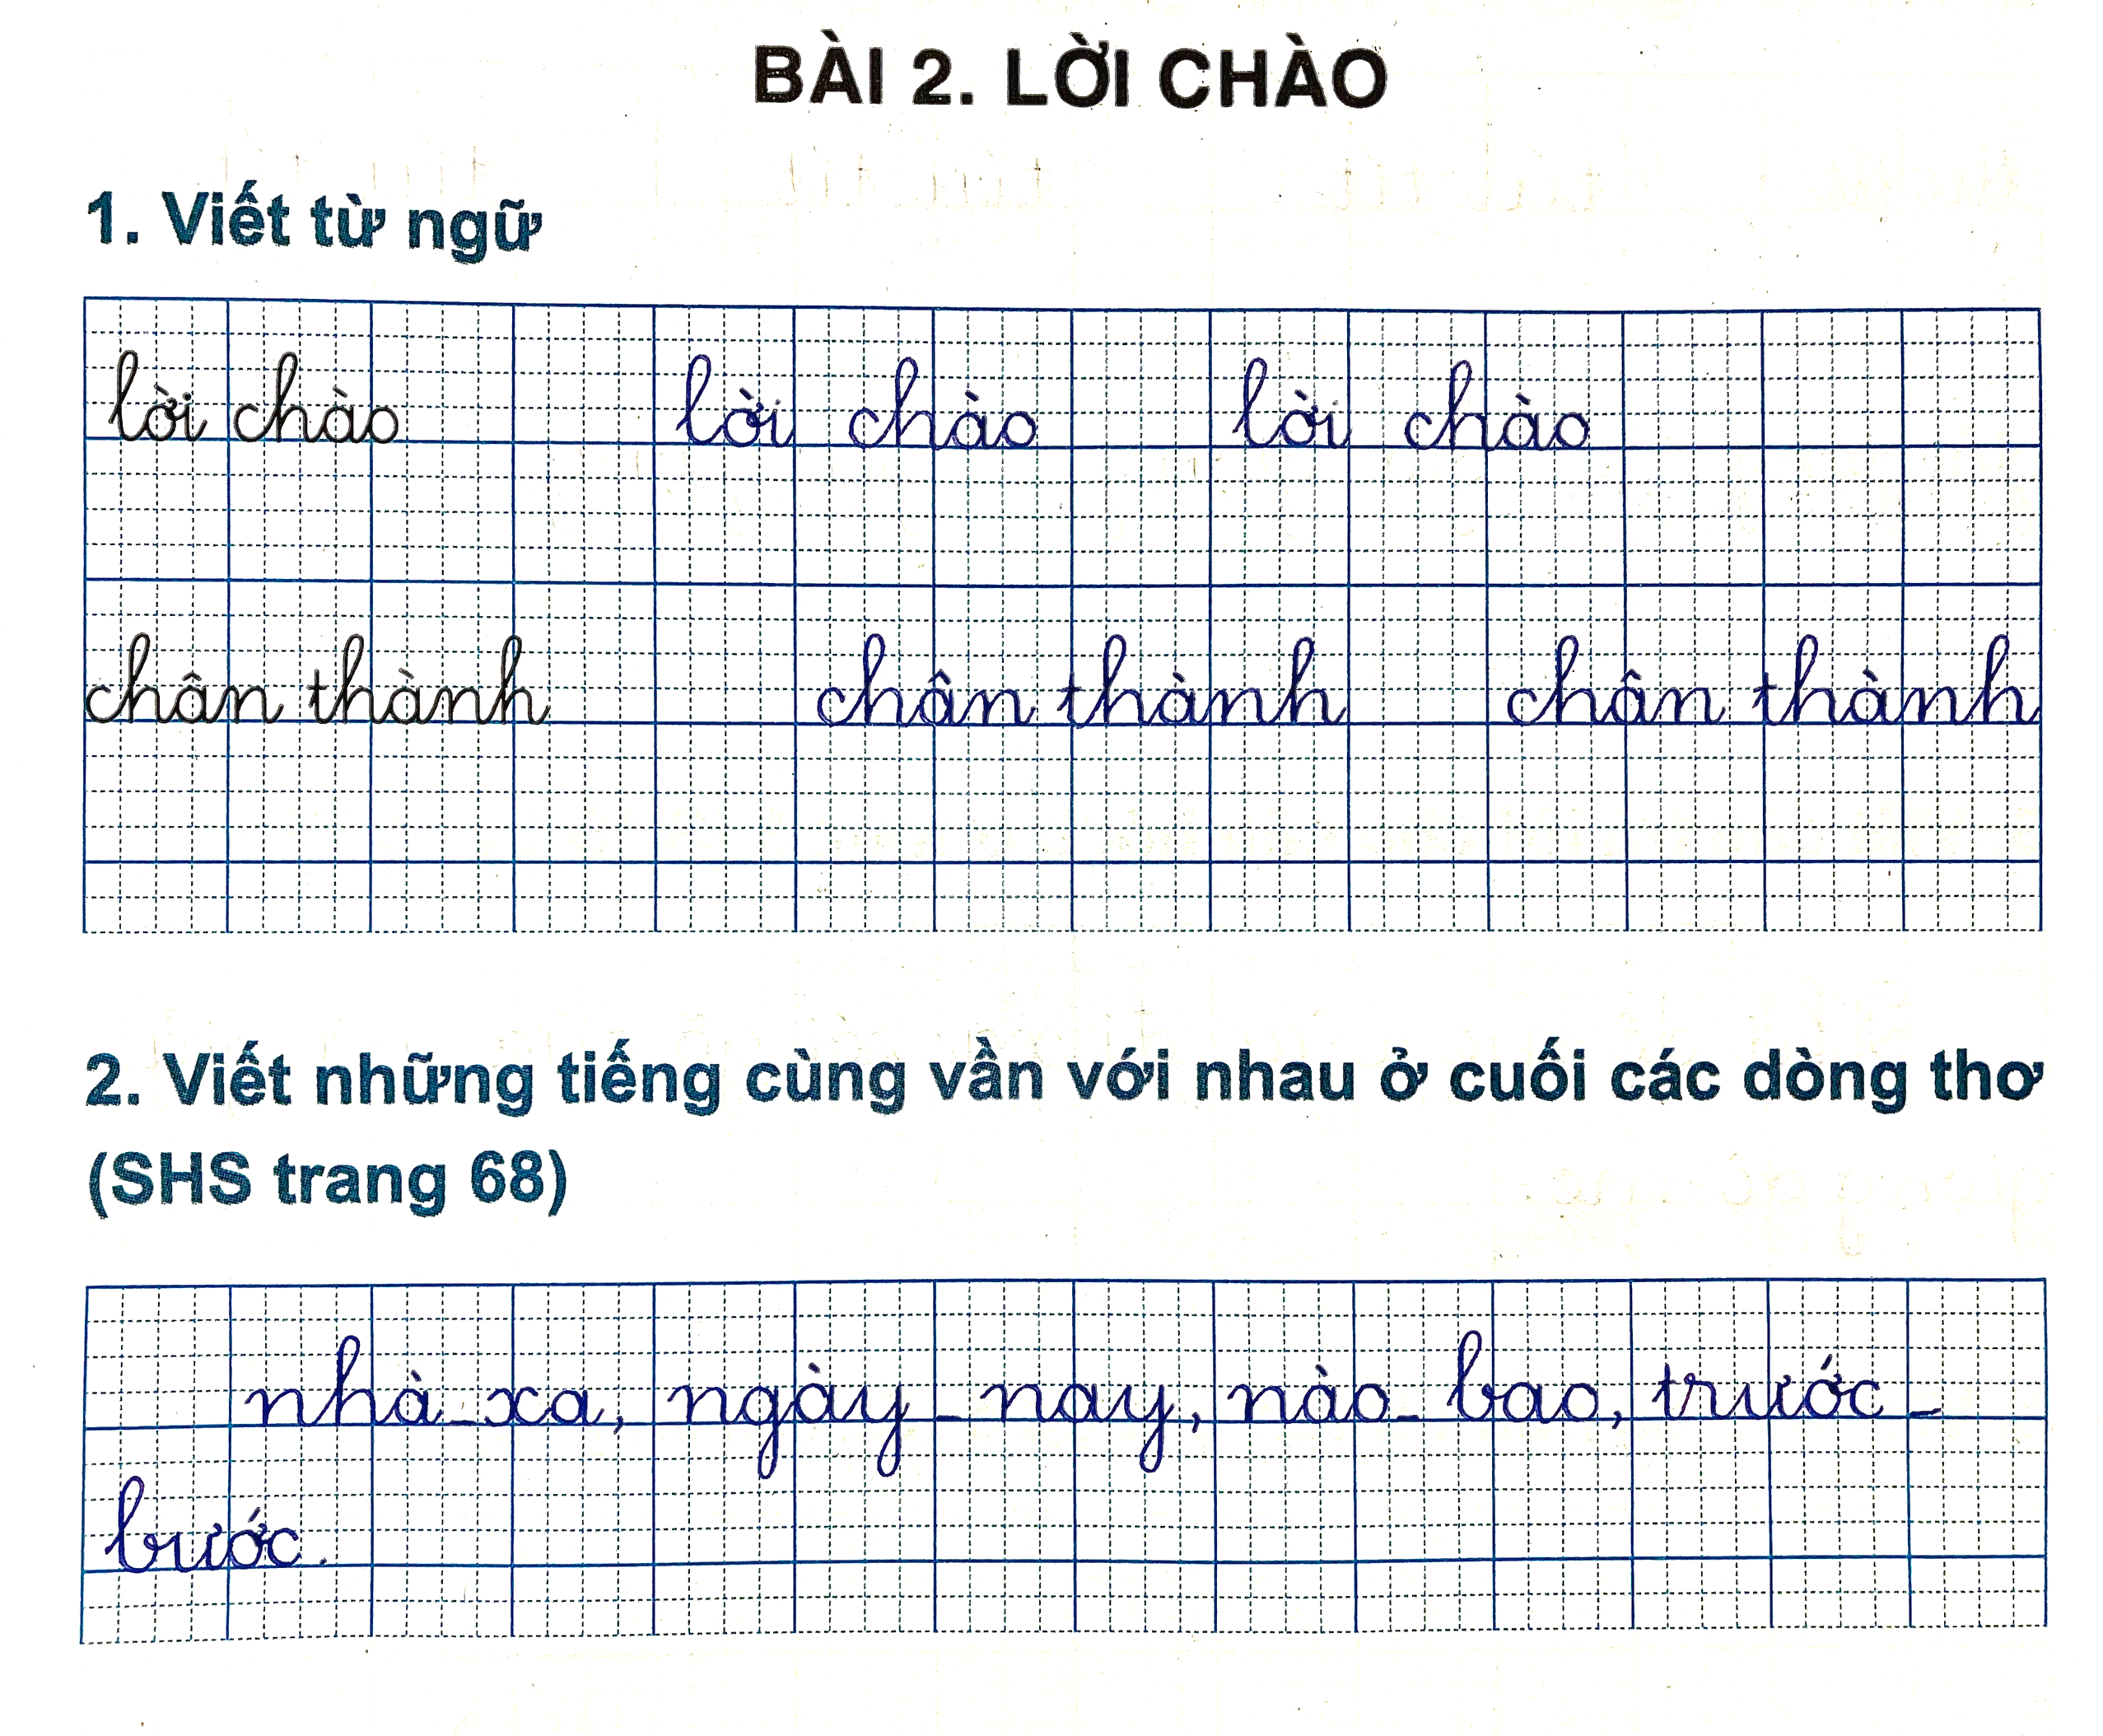 BÀI 2. LỜI CHÀO
1. Viết từ ngữ
lời chào lời chào lời chào
chân thành chân thành chân thành
2. Viết những tiếng cùng vần với nhau ở cuối các dòng thơ
(SHS trang 68)
nhà - xa, ngày - nay, nào - bao, trước -
bước.